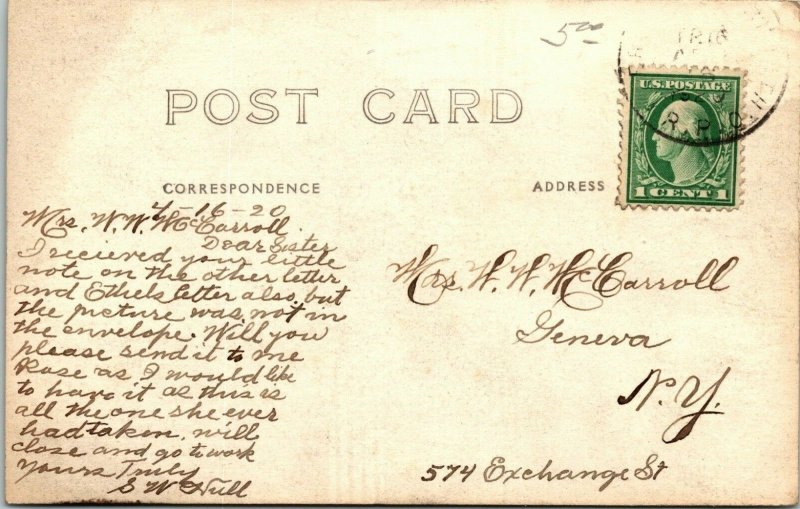 5 00
U.S. POSTAGE
1 CENT 1
R.P.O.
POST CARD
CORRESPONDENCE
ADDRESS
4-16-20
Mrs. W. W. McCarroll
Dear Sister
I recieved your little
note on the other letter
and Ethels letter also, but
the picture was not in
the envelope. Will you
please send it to me
Rose as I would like
to have it as this is
all the one she ever
had taken. will
close and go to work
Yours Truly
S W Hull
Mrs. W. W. McCarroll
Geneva
N.Y.
574 Exchange St